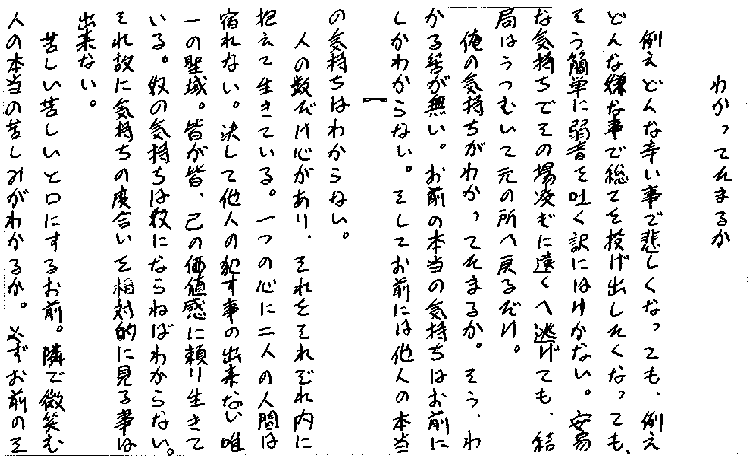 わかってたまるか
例えどんな辛い事で悲しくなっても、例え
どんな嫌な事で総てを投げ出したくなっても、
そう簡単に弱音を吐く訳にはいかない。安易
な気持ちでその場凌ぎに遠くへ逃げても、結
局はうつむいて元の所へ戻るだけ。
俺の気持ちがわかってたまるか。そう、わ
かる筈が無い。お前の本当の気持ちはお前に
しかわからない。そしてお前には他人の本当
の気持ちはわからない。
人の数だけ心があり、それをそれぞれ内に
抱えて生きている。一つの心に二人の人間は
宿れない。決して他人の犯す事の出来ない唯
一の聖域。皆が皆、己の価値感に頼り生きて
いる。奴の気持ちは奴にならねばわからない。
それ故に気持ちの度合いを相対的に見る事は
出来ない。
苦しい苦しいと口にするお前。隣で微笑む
人の本当の苦しみがわかるか。必ずお前のそ